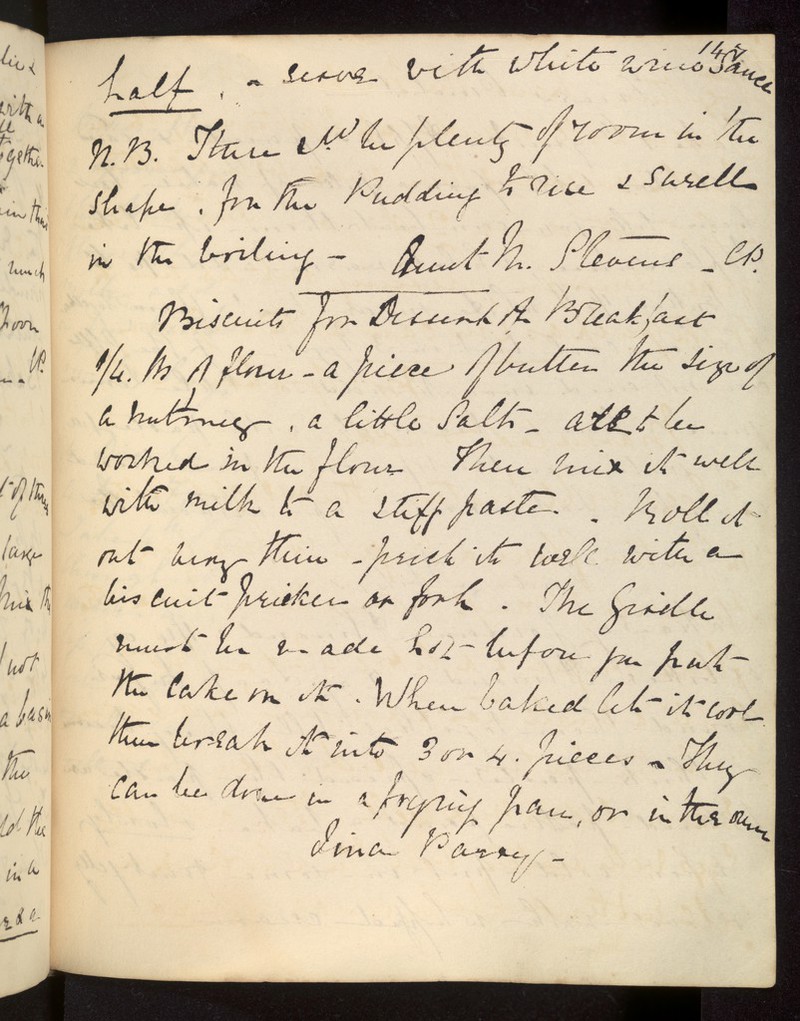 half, - serve with White wine Sauce
N.B. There shd be plenty of room in the
shape, for the Pudding to rise & swell
in the boiling - Aunt M. Stevens - CP.
Biscuits for Dessert or Breakfast
1/4. lb of flour - a piece of butter the size of
a nutmeg, a little Salt - all to be
worked in the flour Then mix it well
with milk to a stiff paste. Roll it
out very thin - prick it well with a
biscuit pricker or fork. The Girdle
must be made hot before you put
the Cake on it. When baked let it cool
then break it into 3 or 4. pieces - They
can be done in a frying pan, or in the oven
Parry -